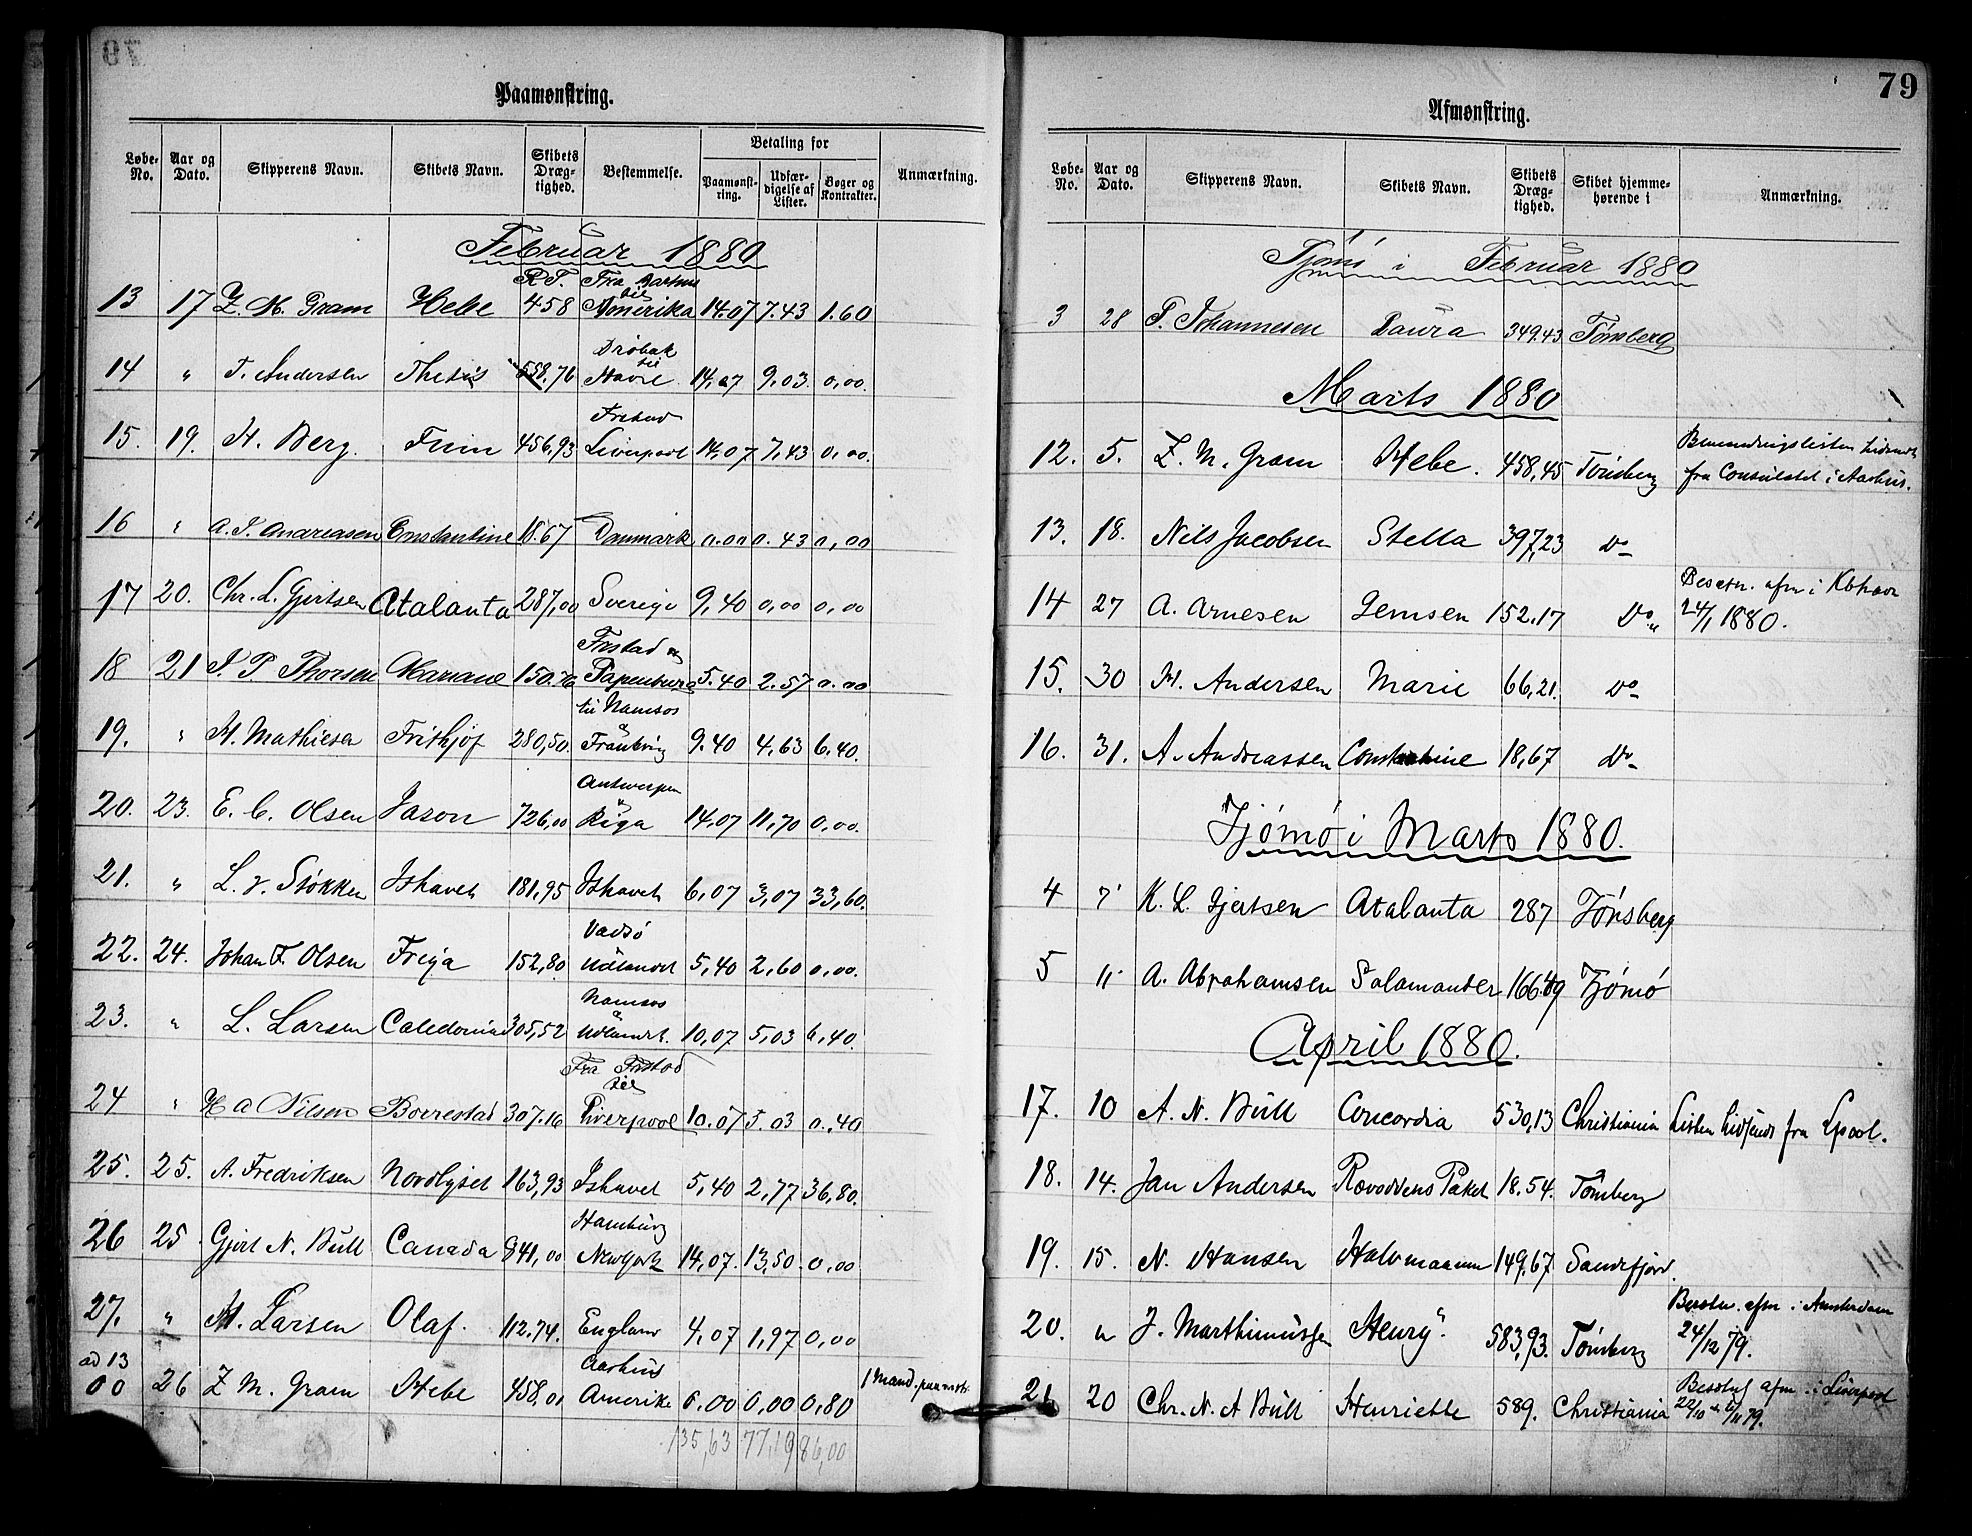 Paamønstring.
Løbe-No. Aar og Dato. Skipperens Navn. Skibets Navn. Skibets Dræg-tighed. Bestemmelse. Betaling for Paamønst-ring. Udfær-digelse af Lister. Bøger og Kontrakter. Anmærkning.
Februar 1880
R.T. Fra Aarhus til
13 17 Z. M. Gram Hebe 458 Amerika 14.07 7.43 1.60
Drøbak til
14 " T. Andersen Thetis 558.76 Havre 14,07 9,03 0,00.
Frstad
15. 19. H. Berg. Frim 456,93 Liverpool 14,07 7,43 0,00.
16 " A. P. Andreasen Constantine 18.67 Danmark 0.00 0.43 0,00
17 20. Chr. L. Gjertsen Atalanta 287,00 Sverige 9,40 0,00 0,00
Frstad
18 21 P. Thorsen Mariane 150.76 Papenburg 5.40 2.57 0.00
til Namsos
19. " M. Mathiesen Frithjof 280,50. Frankrig 9.40 4,63 6,40.
Antwerpen
20. 23. E. C. Olsen Jason 726,00 Riga 14,07 11,70 0,00.
21. " L. v. Støkken Ishavet 181,95 Ishavet 6,07 3,07 33,60.
Vadsø
22. 24. Johan F. Olsen Freya 152,80 Udlandet 5,40 2,60 0,00.
Namsos
23. " L. Larsen Caledonia 305,52 Udlandet. 10,07 5,03 6,40.
Fra Frstad til
24 " H A Nilsen Borrestad 307.16 Liverpool 10.07 5.03 0.40
25. 25. A. Fredriksen Nordlyset 163,93 Ishavet 5,40 2,77 36,80.
Hamburg
26 25 Gjert N. Bull Canada 841,00 NewYork 14,07. 13,50. 0,00
27. " M. Larsen Olaf. 112.74. England 4,07 1,97 0,00
ad 13 Aarhus
00 26 Z M. Gram Hebe 458,01 Amerika 0.00 0,00 0,80 1 Mand paamstr.
135,63 77,19 86,00
79
Afmønstring.
Løbe-No. Aar og Dato. Skipperens Navn. Skibets Navn. Skibets Dræg-tighed. Skibet hjemme-hørende i Anmærkning.
Tjömö i Februar 1880
3 28 P. Johannesen Laura 349.43 Tønsberg
Marts 1880
12. 5. Z. M. Gram Hebe. 458,45 Tönsberg Bemandingslisten tidsendt
fra Consulatet i Aarhus.
13. 18. Nils Jacobsen Stella 397,23 Do
Besetn. afm i Kbhavn
14 27 A. Arnesen Gemsen 152.17 Do " 24/1 1880.
15. 30 M. Andersen Marie 66,21. Do
16. 31. A. Andreassen Constantine 18,67 Do
Tjömö i Marts 1880.
4 7 K. L. Gjertsen Atalanta 287 Tönsberg
5 11 A. Abrahamsen Salamander 166.49 Tjömö
April 1880.
17. 10 A. N. Bull Concordia 530,13 Christiania Listen tidsendt fra Lpool.
18. 14. Jan Andersen Rævoddens Paket 18.54. Tönsberg
19. 15. N. Hansen Halvmaanen 149.67 Sandefjord.
Besetn. afm. i Amsterdam
20. " J. Marthiniussen Henry. 583,93. Tönsberg 24/12 79.
Besetn. afm. i Liverpool
21 20 Chr. N. A Bull Henriette 589. Christiania 22/10